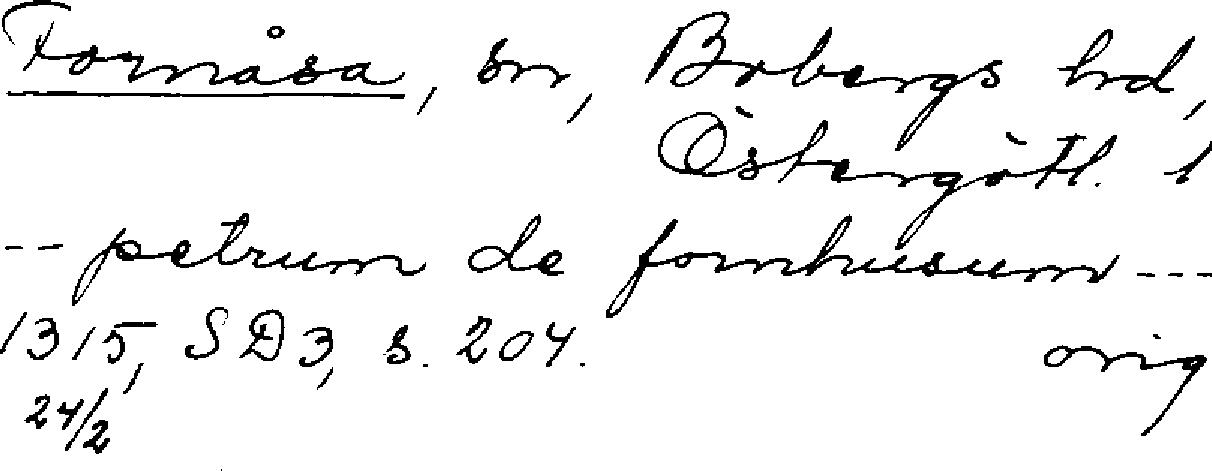 Fornåsa, sn, Bobergs hrd,
Östergötl. l
-- petrum de fornhusum ---
1315, SD3, s. 204. orig
24/2